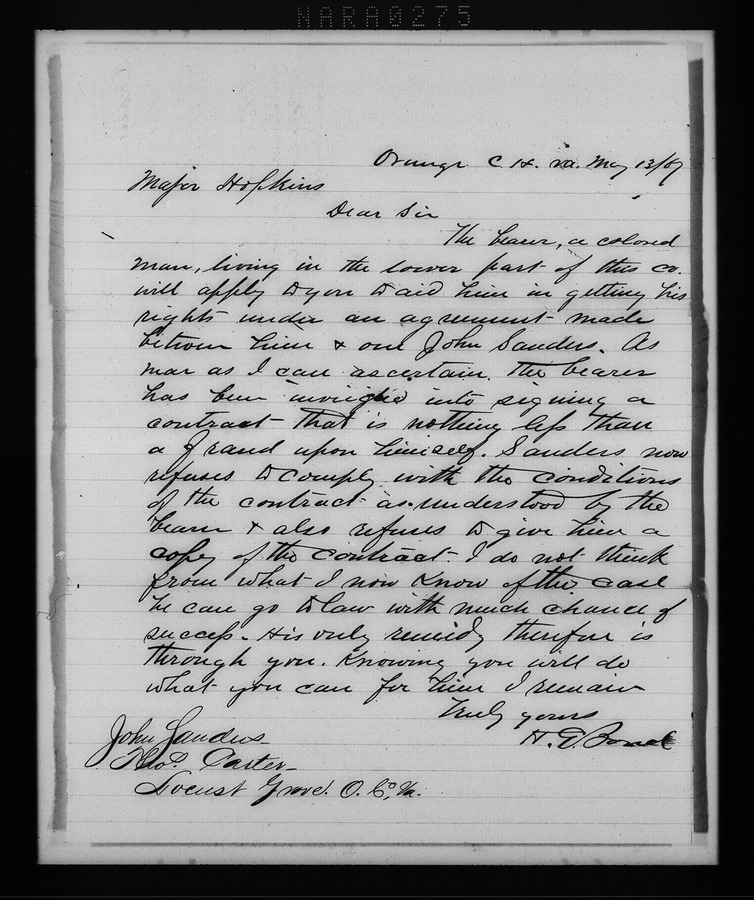 NARA0275
Orange C.H. Va. May 13/67
Major Hopkins
Dear Sir
The bearer, a colored
man, living in the lower part of this co.
will apply to you to aid him in getting his
rights under an agreement made
between him & one John Sanders. As
near as I can ascertain the bearer
has been inveigled into signing a
contract that is nothing less than
a fraud upon himself. Sanders now
refuses to comply with the conditions
of the contract as understood by the
bearer & also refuses to give him a
copy of the contract. I do not think
from what I now know of the case
he can go to law with much chance of
success. His only remidy therefore is
through you. Knowing you will do
what you can for him I remain
Truly yours
H. E.
John Sanders
Thos. Carter
Locust Grove. O. Co, Va.